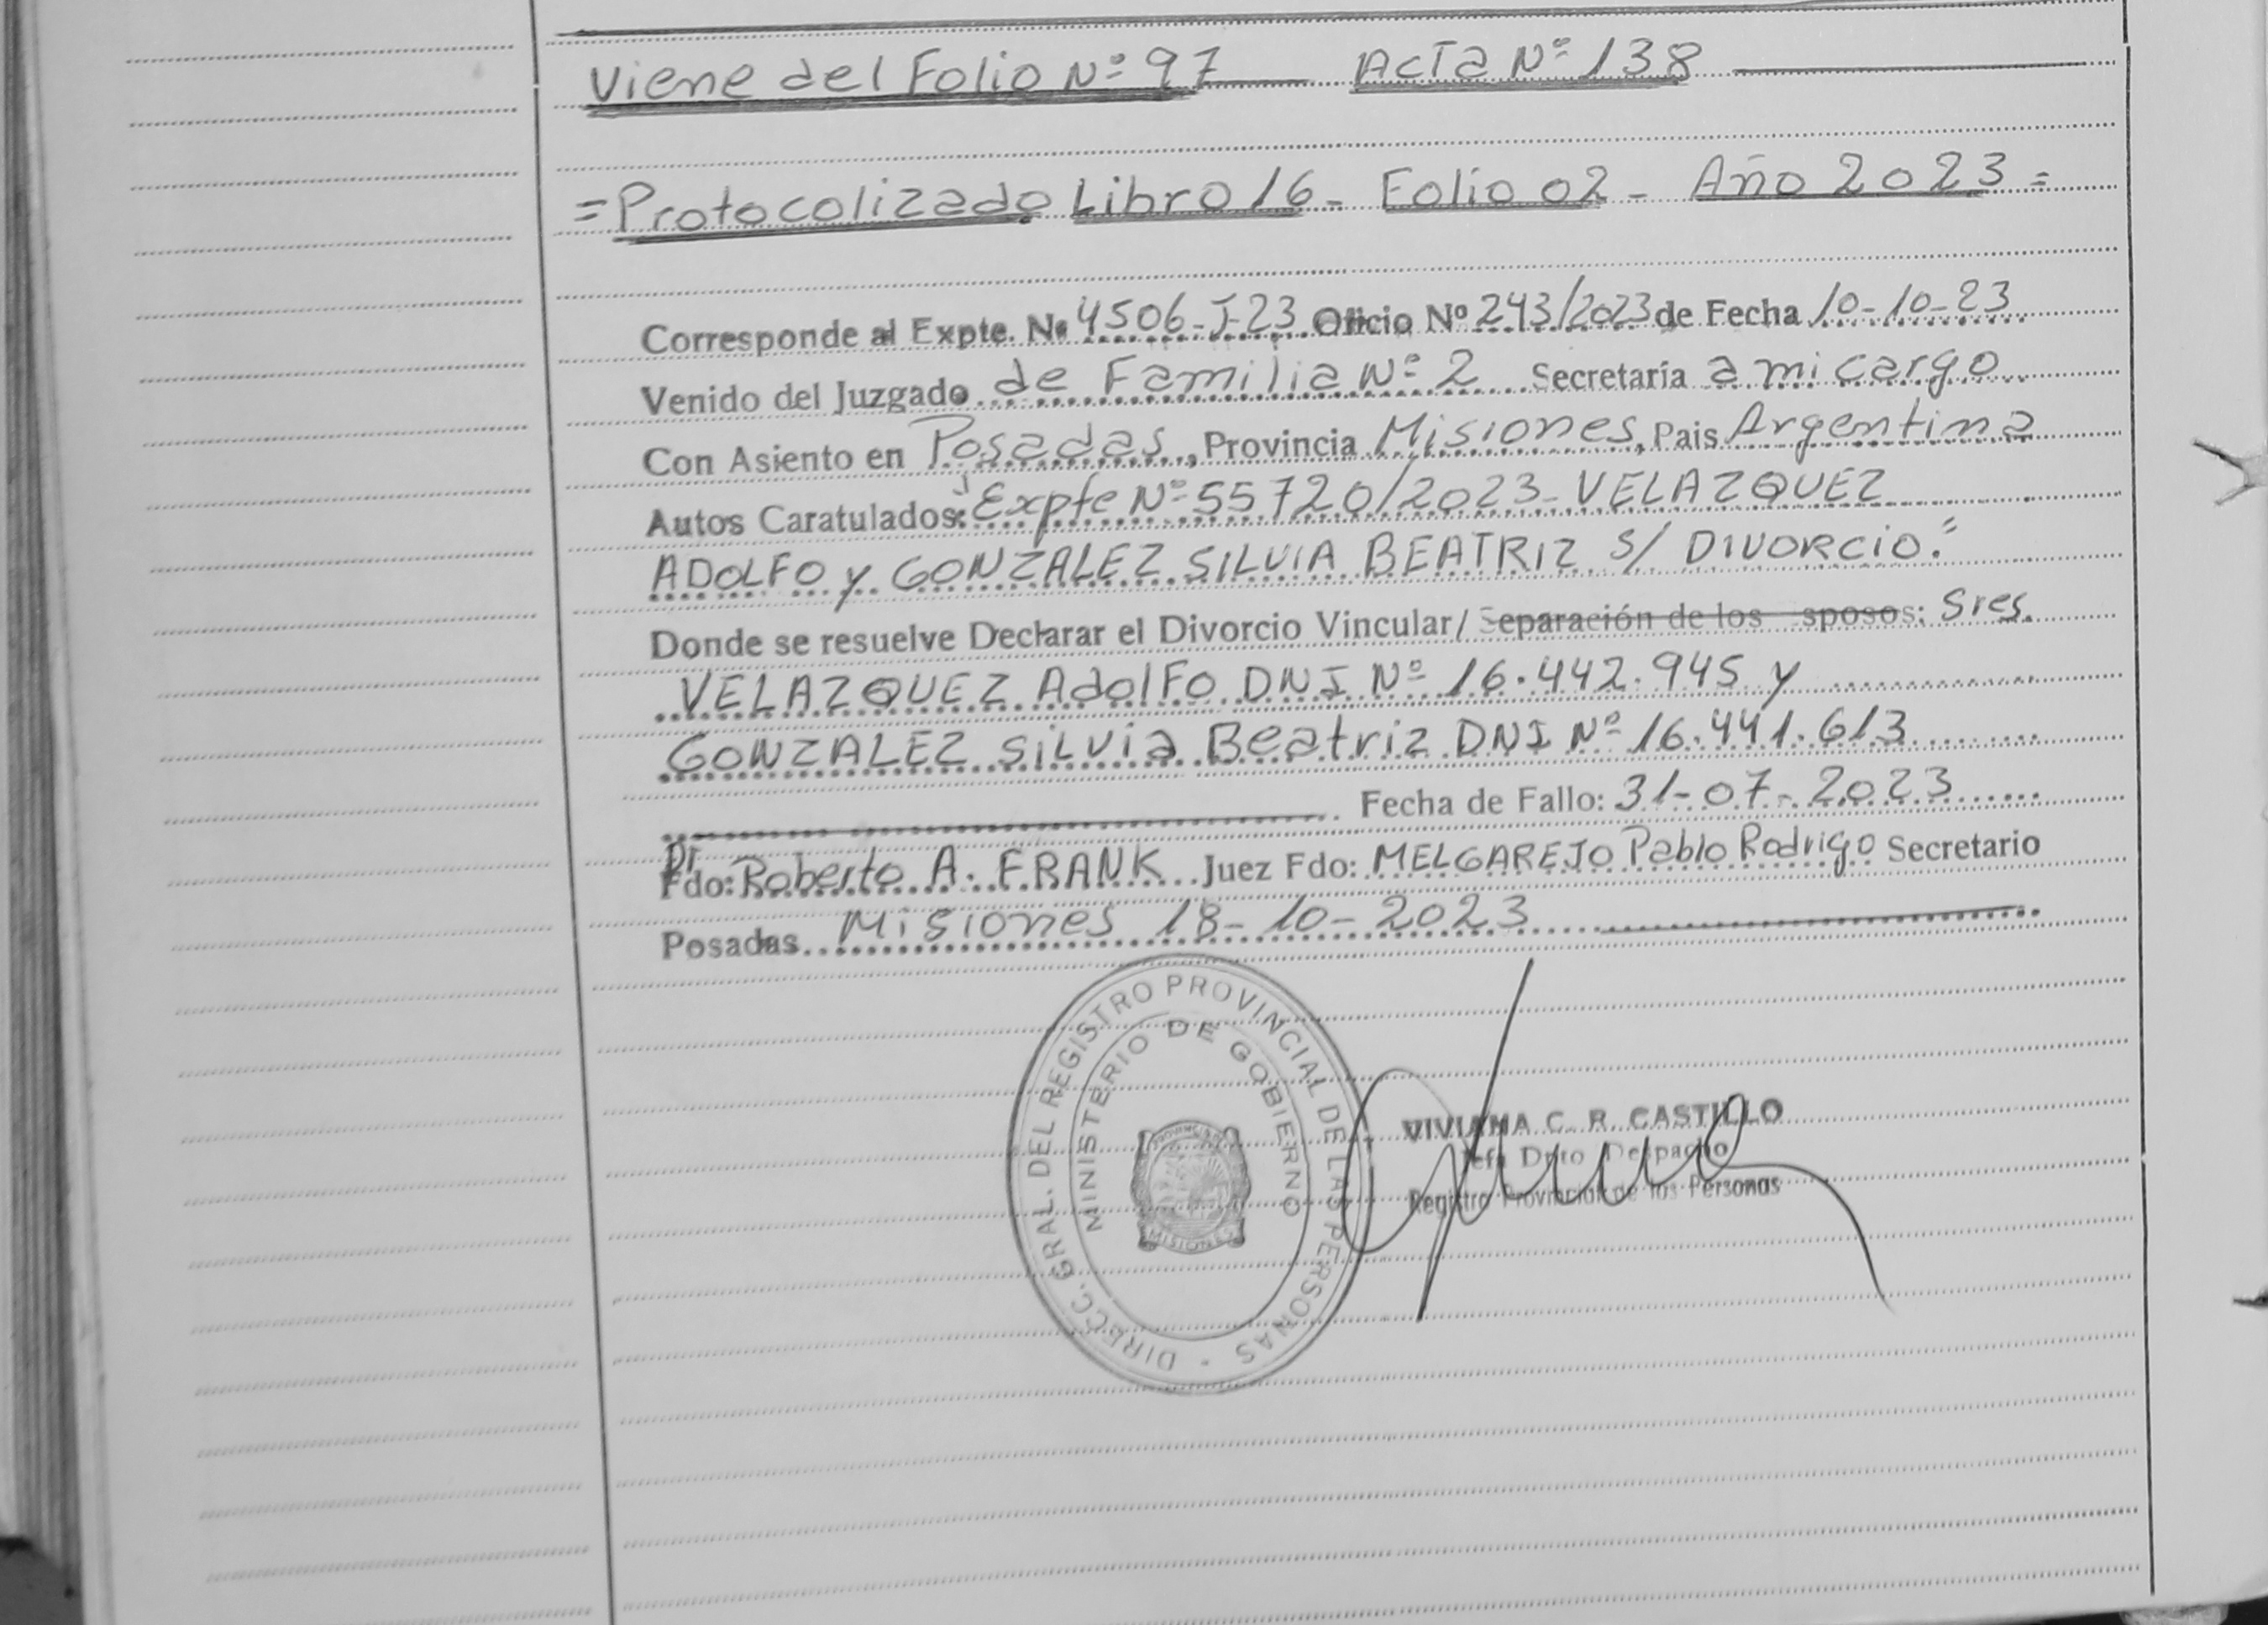 Viene del Folio Nº 97 Acta Nº 138
=Protocolizado Libro 16- Folio 02- Año 2023=
Corresponde al Expte. Nº 4506-J-23 Oficio Nº 243/2023 de Fecha 10-10-23
Venido del Juzgado de Familia Nº 2 Secretaría a mi cargo
Con Asiento en Posadas, Provincia Misiones, Pais Argentina
Autos Caratulados: "Expte Nº 55720/2023- VELAZQUEZ
ADOLFO y GONZALEZ SILVIA BEATRIZ S/ DIVORCIO."
Donde se resuelve Declarar el Divorcio Vincular/ Separación de los sposos: Sres.
VELAZQUEZ AdolFo DNI Nº 16.442.945 y
GONZALEZ Silvia Beatriz DNI Nº 16.441.613
Fecha de Fallo: 31-07-2023
Dr
Fdo: Roberto A. FRANK Juez Fdo: MELGAREJO Pablo Rodrigo Secretario
Posadas Misiones 18-10-2023
DIRECC. GRAL. DEL REGISTRO PROVINCIAL DE LAS PERSONAS
MINISTERIO DE GOBIERNO
MISIONES
VIVIANA C. R. CASTILLO
Jefa Dpto Despacho
Registro Provincial de las Personas